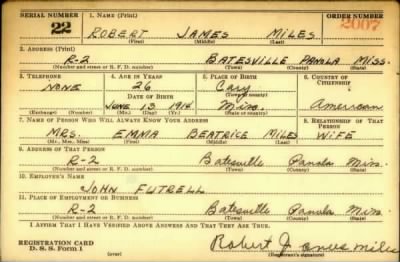 SERIAL NUMBER 1. NAME (Print) ORDER NUMBER
22 ROBERT JAMES MILES 2007
(First) (Middle) (Last)
2. ADDRESS (Print)
R-2 BATESVILLE PANOLA MISS.
(Number and street or R. F. D. number) (Town) (County) (State)
3. TELEPHONE 4. AGE IN YEARS 5. PLACE OF BIRTH 6. COUNTRY OF CITIZENSHIP
NONE 26 Cary
DATE OF BIRTH (Town or county)
JUNE 13 1914 Miss. American
(Exchange) (Number) (Mo.) (Day) (Yr.) (State or country)
7. NAME OF PERSON WHO WILL ALWAYS KNOW YOUR ADDRESS 8. RELATIONSHIP OF THAT PERSON
MRS. EMMA BEATRICE MILES WIFE
(Mr., Mrs., Miss) (First) (Middle) (Last)
9. ADDRESS OF THAT PERSON
R-2 Batesville Panola Miss.
(Number and street or R. F. D. number) (Town) (County) (State)
10. EMPLOYER'S NAME
JOHN FUTRELL
11. PLACE OF EMPLOYMENT OR BUSINESS
R-2 Batesville Panola Miss.
(Number and street or R. F. D. number) (Town) (County) (State)
I AFFIRM THAT I HAVE VERIFIED ABOVE ANSWERS AND THAT THEY ARE TRUE.
REGISTRATION CARD Robert James Miles
D. S. S. Form 1 (over) (Registrant's signature)